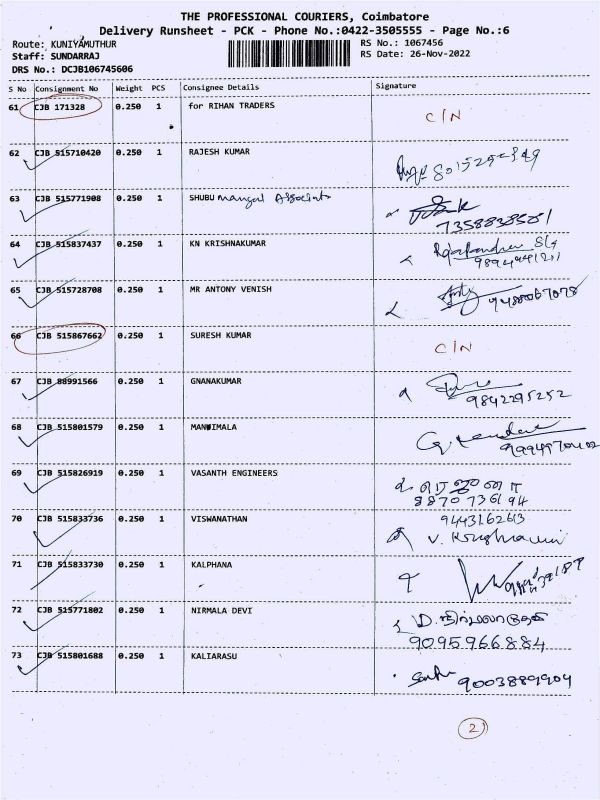 THE PROFESSIONAL COURIERS, Coimbatore
Delivery Runsheet - PCK - Phone No.:0422-3505555 - Page No.:6
Route: KUNIYAMUTHUR RS No.: 1067456
Staff: SUNDARRAJ RS Date: 26-Nov-2022
DRS No.: DCJB106745606
S No Consignment No Weight PCS Consignee Details Signature
61 CJB 171328 0.250 1 for RIHAN TRADERS C/N
62 CJB 515710420 0.250 1 RAJESH KUMAR
63 CJB 515771908 0.250 1 SHUBU mangal Associats
7358838581
64 CJB 515837437 0.250 1 KN KRISHNAKUMAR
65 CJB 515728708 0.250 1 MR ANTONY VENISH
66 CJB 515867662 0.250 1 SURESH KUMAR C/N
67 CJB 88991566 0.250 1 GNANAKUMAR
9842295252
68 CJB 515801579 0.250 1 MANIMALA
69 CJB 515826919 0.250 1 VASANTH ENGINEERS
8870736194
70 CJB 515833736 0.250 1 VISWANATHAN
71 CJB 515833730 0.250 1 KALPHANA
72 CJB 515771802 0.250 1 NIRMALA DEVI
9095966884
73 CJB 515801688 0.250 1 KALIARASU 9003889904
2